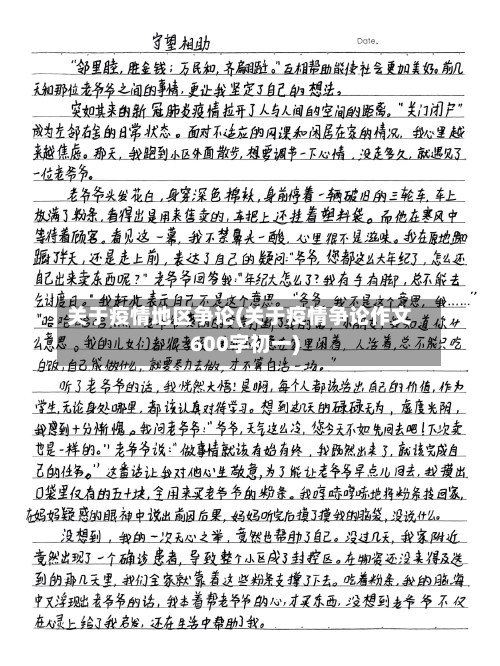 守望相助
Date.
"邻里睦,胜金钱;万民和,齐翩跹。"互相帮助能使社会更加美好。前几
天和那位老爷爷之间的事情,更让我坚定了自己的想法。
突如其来的新冠肺炎疫情拉开了人与人间的空间的距离。"关门闭户"
成为左邻右舍的日常状态。面对不适应的网课和闲居在家的情况,我心里越
来越焦虑。那天,我跑到小区外面散步,想要调节一下心情,没走多久,就遇见了
一位老爷爷。
老爷爷头发花白,身穿深色棉袄,身前停着一辆破旧的三轮车,车上
放满了粉条,看得出是用来售卖的,车把上还挂着塑料袋。而他在寒风中
等待着顾客。看见这一幕,我不禁鼻头一酸,心里很不是滋味。我在原地踟
蹰了半天,还是走上前,表达了自己的疑问:"爷爷,您都这么大年纪了,怎么还
自己出来卖东西呢?"老爷爷回答我:"年纪大怎么了?我有手有脚,总不能去
乞讨度日。"我赶忙表示自己不是这个意思。"爷爷,我不是这个意思,我……"
"哈哈
关于疫情地区争论(关于疫情争论作文
600字初一)
知道你什
么意思。我的儿女们都很孝
闲着,人活着,总不能只吃
白饭,自己能做什么,就要尽力去做,才不算白活一场。"
听了老爷爷的话,我恍然大悟!是啊,每个人都该活出自己的价值,作为
学生,无论身处哪里,都该认真对待学习。想到过几天的碌碌无为,虚度光阴,
我感到十分惭愧。我问老爷爷:"爷爷,天气这么冷,您今天不如先回去吧!下次卖
也是一样的。"老爷爷说:"做事情就该有始有终,我既然出来了,就该完成自
己的任务。"这番话让我对他心生敬意,为了能让老爷爷早点儿回去,我摸出
口袋里仅有的五十块,全用来买老爷爷的粉条。我哼哧哼哧地将粉条拉回家,
在妈妈疑惑的眼神中说出前因后果,妈妈听完后摸了摸我的脑袋,没说什么。
没想到,我的一次无心之举,竟然也帮助了自己。没过几天,我家附近
竟然出现了一个确诊患者,导致整个小区成了封控区。在物资还没来得及送
到的那几天里,我们全家就靠着这些粉条支撑了下去。吃着粉条,我的脑海
中又浮现出老爷爷的话,我本着帮老爷爷的心,才买东西,没想到老爷爷不仅
在心灵上给了我启发,还在生活中帮助了我。